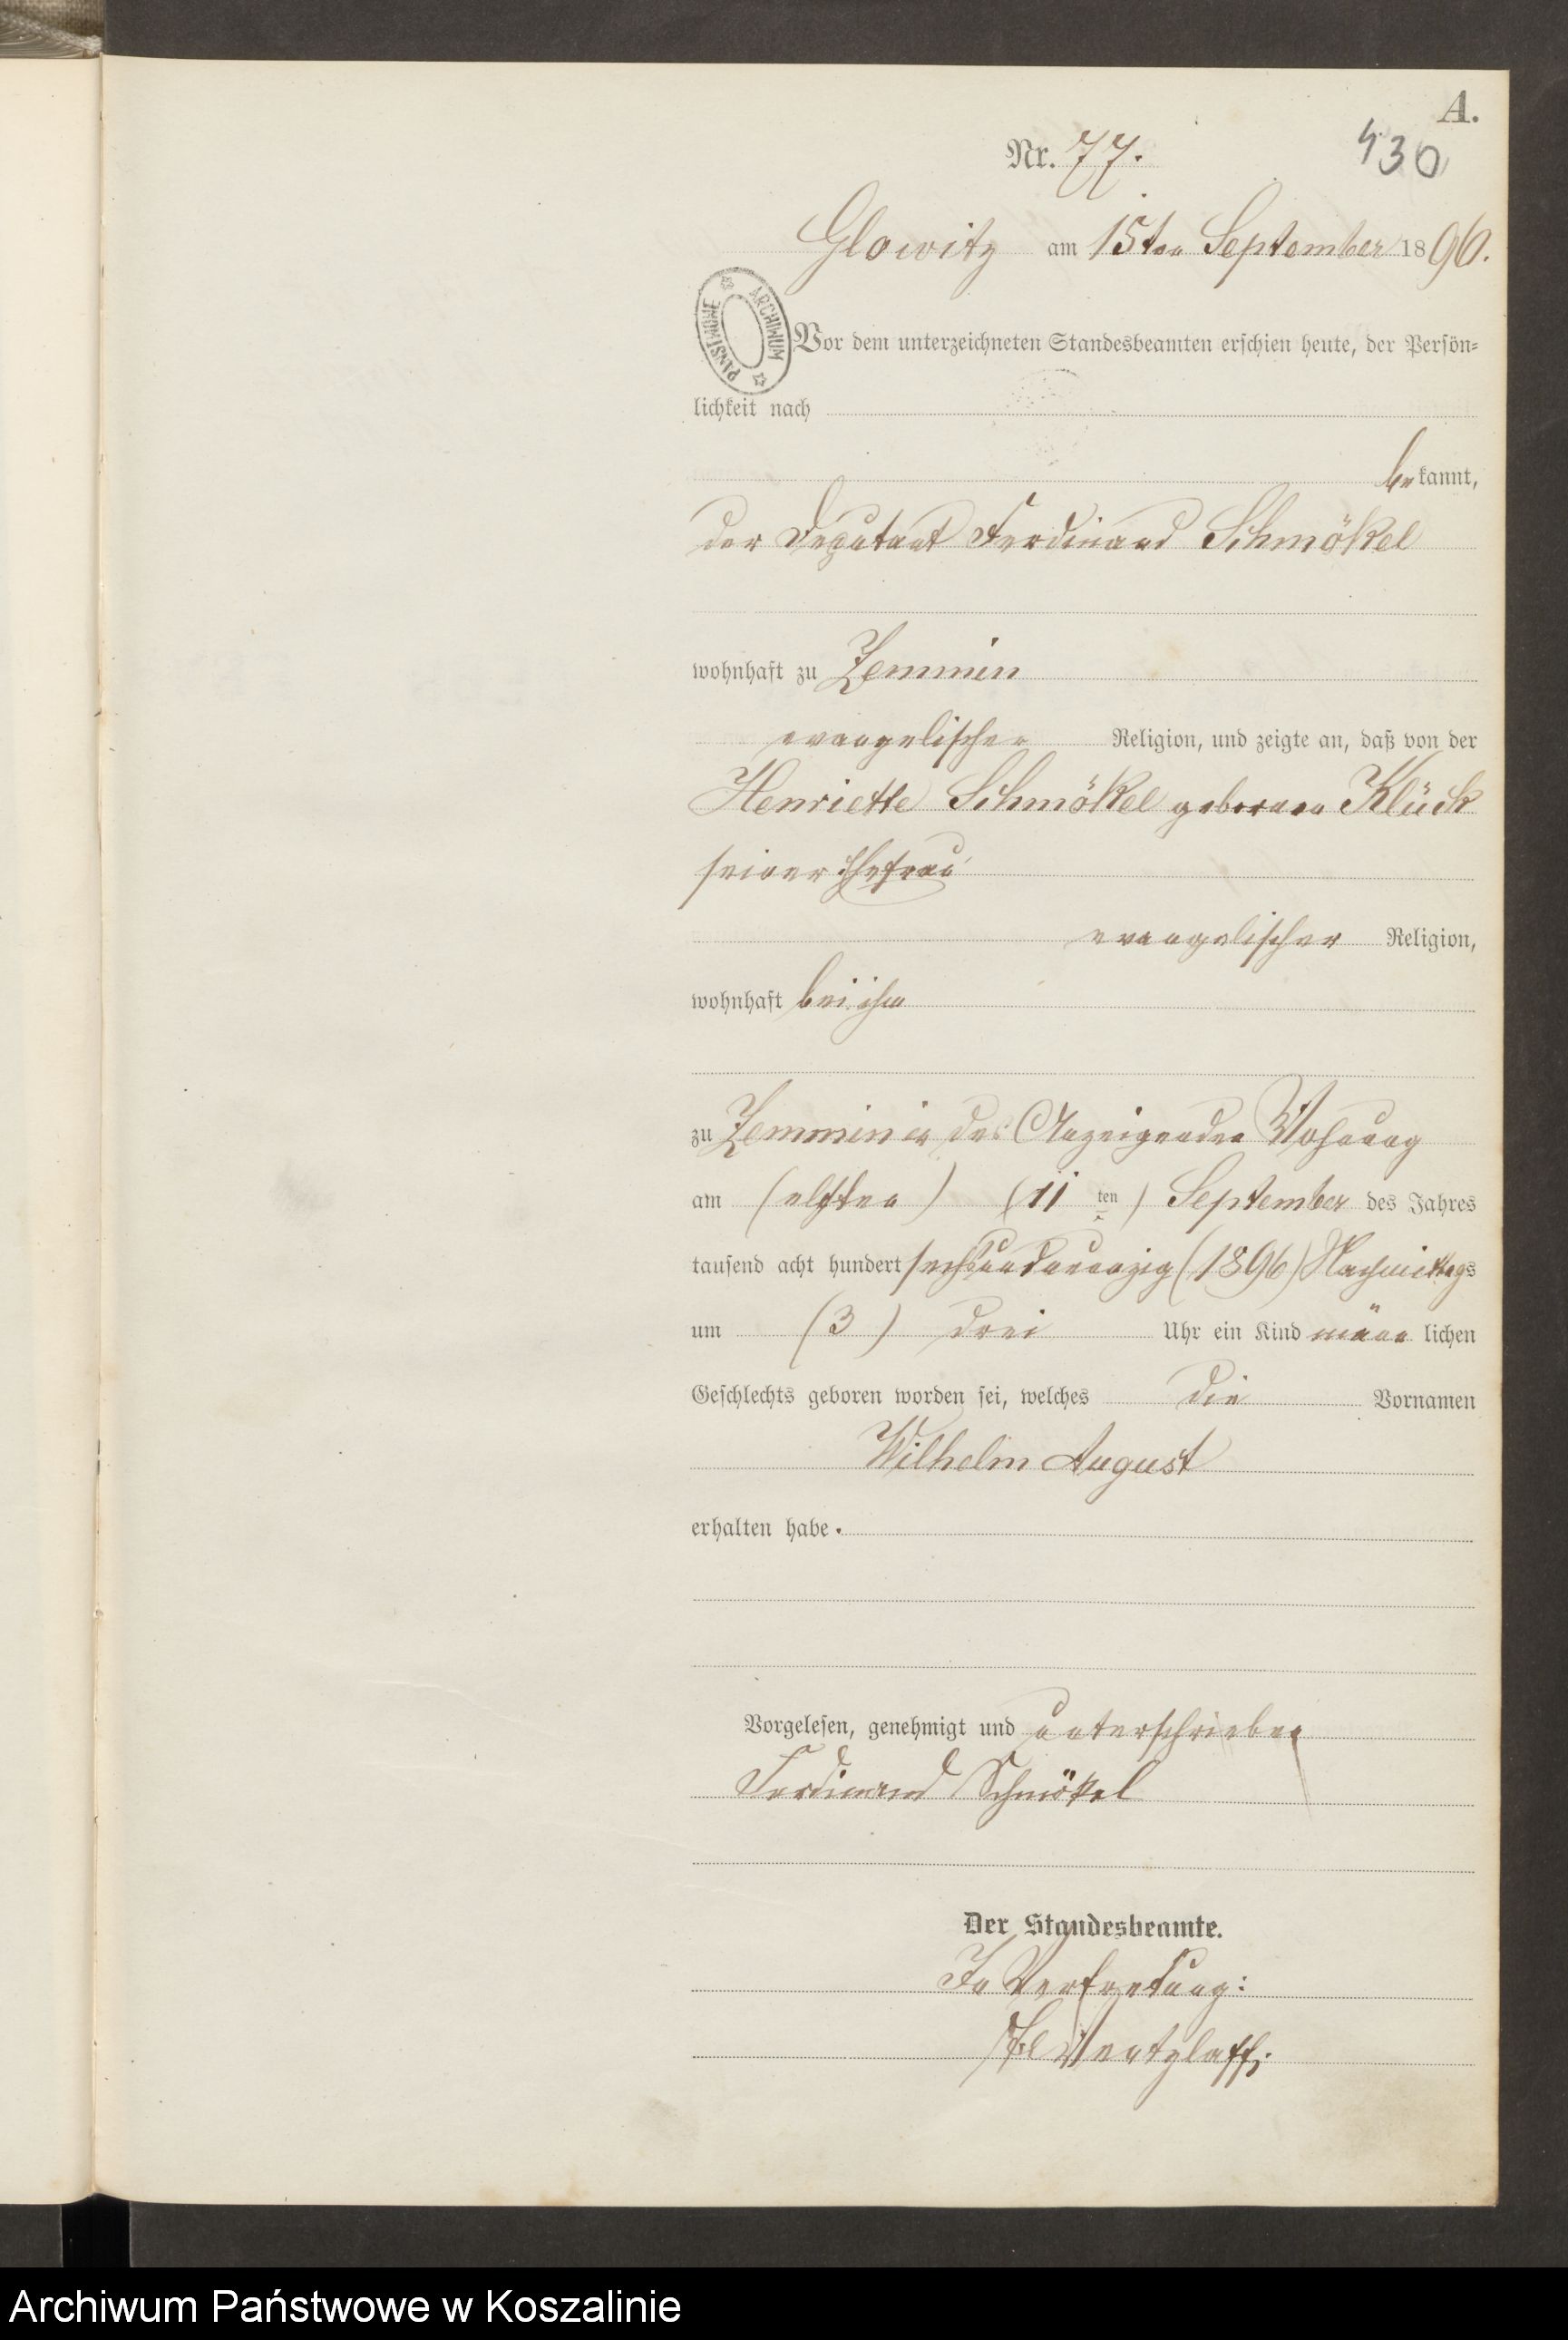 A.
Nr. 77.
430
Glowitz am 15ten September 1896.
ARCHIWUM PAŃSTWOWE
Vor dem unterzeichneten Standesbeamten erschien heute, der Persön-
lichkeit nach
bekannt,
der Deputant Ferdinand Schmökel
wohnhaft zu Zemmin
evangelischer Religion, und zeigte an, daß von der
Henriette Schmökel geborenen Klück
seiner Ehefrau
evangelischer Religion,
wohnhaft bei ihm
zu Zemmin in des Anzeigenden Wohnung
am (elften) (11ten) September des Jahres
tausend acht hundert sechsundneunzig (1896) Nachmittags
um (3) drei Uhr ein Kind männlichen
Geschlechts geboren worden sei, welches die Vornamen
Wilhelm August
erhalten habe.
Vorgelesen, genehmigt und unterschrieben
Ferdinand Schmökel
Der Standesbeamte.
In Vertretung:
Wentzlaff.
Archiwum Państwowe w Koszalinie